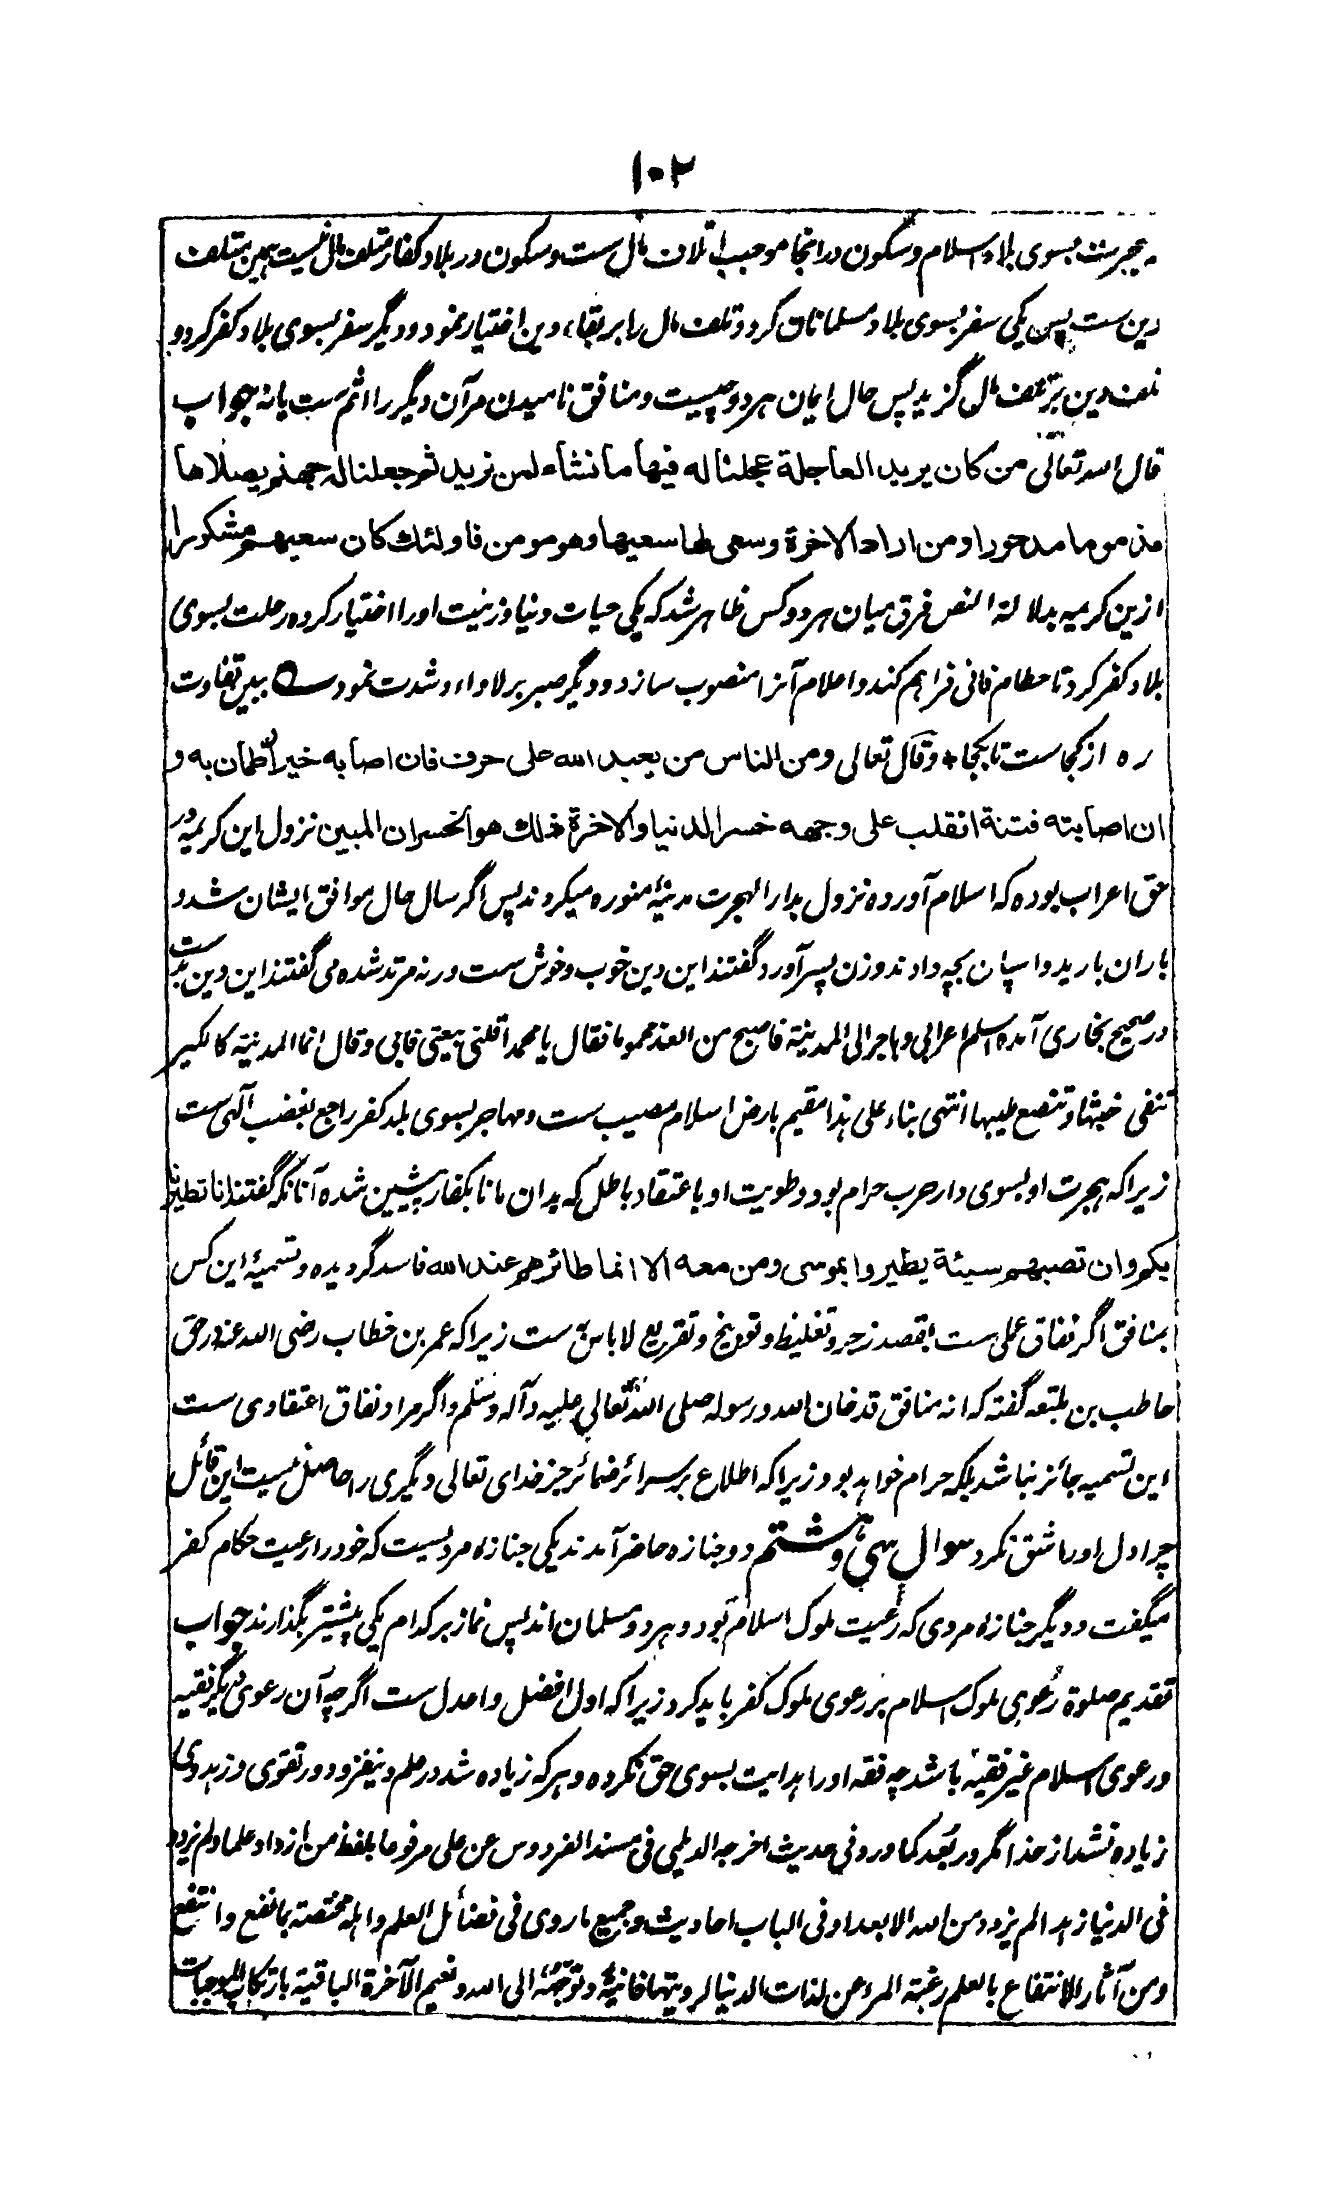 ۱۰۲
هجرت بسوی بلاد اسلام و سکون در انجا موجب اتلاف مال ست و سکون در بلاد کفار متلف مال نیست بهین متلف
دین ست پس یکی سفر بسوی بلاد مسلمانان کرد و تلف مال را بر بقاء دین اختیار نمود و دیگر سفر بسوی بلاد کفر کرد و
تلف دین بر تلف مال گزید پس حال ایمان هر دو چیست و منافق نامیدن مر آن دیگر را اثم ست یا نه جواب
قال الله تعالی من کان یرید العاجلة عجلنا له فیها ما نشاء لمن نرید ثم جعلنا له جهنم یصلاها
مذموما مدحورا و من اراد الاخرة وسعی لها سعیها وهو مومن فاولئك کان سعیهم مشکورا
ازین کریمه بدلالة النص فرق میان هر دو کس ظاهر شد که یکی حیات دنیا و زینت او را اختیار کرده رحلت بسوی
بلاد کفر کرد تا حطام فانی فراهم کند و اعلام آنرا منصوب سازد و دیگر صبر بر لاواء و شدت نمود ے ببین تفاوت
ره از کجاست تا بکجا * وقال تعالی ومن الناس من یعبد الله علی حرف فان اصابه خیر اطمأن به و
ان اصابته فتنة انقلب علی وجهه خسر الدنیا والاخرة ذلك هو الخسران المبین نزول این کریمه در
حق اعراب بوده که اسلام آورده نزول بدار الهجرت مدینهٔ منوره میکردند پس اگر سال حال موافق ایشان شد و
باران بارید و اسپان بچه دادند و زن پسر آورد گفتند این دین خوب و خوش ست ورنه مرتد شده می گفتند این دین بد ست
در صحیح بخاری آمده اسلم اعرابی و هاجر الی المدینة فاصبح من الغد محموما فقال یا محمد اقلنی بیعتی فابی و قال انما المدینة کالکیر
تنفی خبثها و تنصع طیبها انتهی بناء علی هذا مقیم بارض اسلام مصیب ست و مهاجر بسوی بلد کفر راجع بغضب آلهی ست
زیرا که هجرت او بسوی دار حرب حرام بود و طویت او با عتقاد باطل که بدان مانا بکفار پیشین شده آنانکه گفتند انا تطیرنا
بکم وان تصبهم سیئة یطیروا بموسی ومن معه الا انما طائرهم عند الله فاسد گردیده و تسمیهٔ این کس
بمنافق اگر نفاق عملی ست بقصد زجر و تغلیظ و توبیخ و تقریع لا باس به ست زیرا که عمر بن خطاب رضی الله عنه در حق
حاطب بن بلتعه گفته که انه منافق قد خان الله و رسوله صلی الله تعالی علیه و آله و سلم و اگر مراد نفاق اعتقادی ست
این تسمیه جائز نباشد بلکه حرام خواهد بود زیرا که اطلاع بر سرائر ضمائر جز خدای تعالی دیگری را حاصل نیست این قائل
چرا دل او را شق نکرد سوال سی و هشتم دو جنازه حاضر آمدند یکی جنازه مردیست که خود را رعیت حکام کفر
میگفت و دیگر جنازه مردی که رعیت ملوک اسلام بود و هر دو مسلمان اند پس نماز بر کدام یکی پیشتر بگذارند جواب
تقدیم صلوة رعوی ملوک اسلام بر رعوی ملوک کفر باید کرد زیرا که اول افضل و اعدل ست اگرچه آن رعوی دیگر فقیه
و رعوی اسلام غیر فقیه باشد چه فقه او را هدایت بسوی حق نکرده و هر که زیاده شد در علم و نیفزود در تقوی و زهد وی
زیاده نشد از خدا مگر در بعد کما ورد فی حدیث اخرجه الدیلمی فی مسند الفردوس عن علی مرفوعا بلفظ من ازداد علما ولم یزدد
فی الدنیا زهدا لم یزدد من الله الا بعدا وفی الباب احادیث وجمیع ما روی فی فضائل العلم واهله مختصة بما نفع وانتفع
ومن آثار الانتفاع بالعلم رغبة المرء عن لذات الدنیا لرویتها فانیة و توجهه الی الله ونعیم الآخرة الباقیة بارتکاب الموجبات